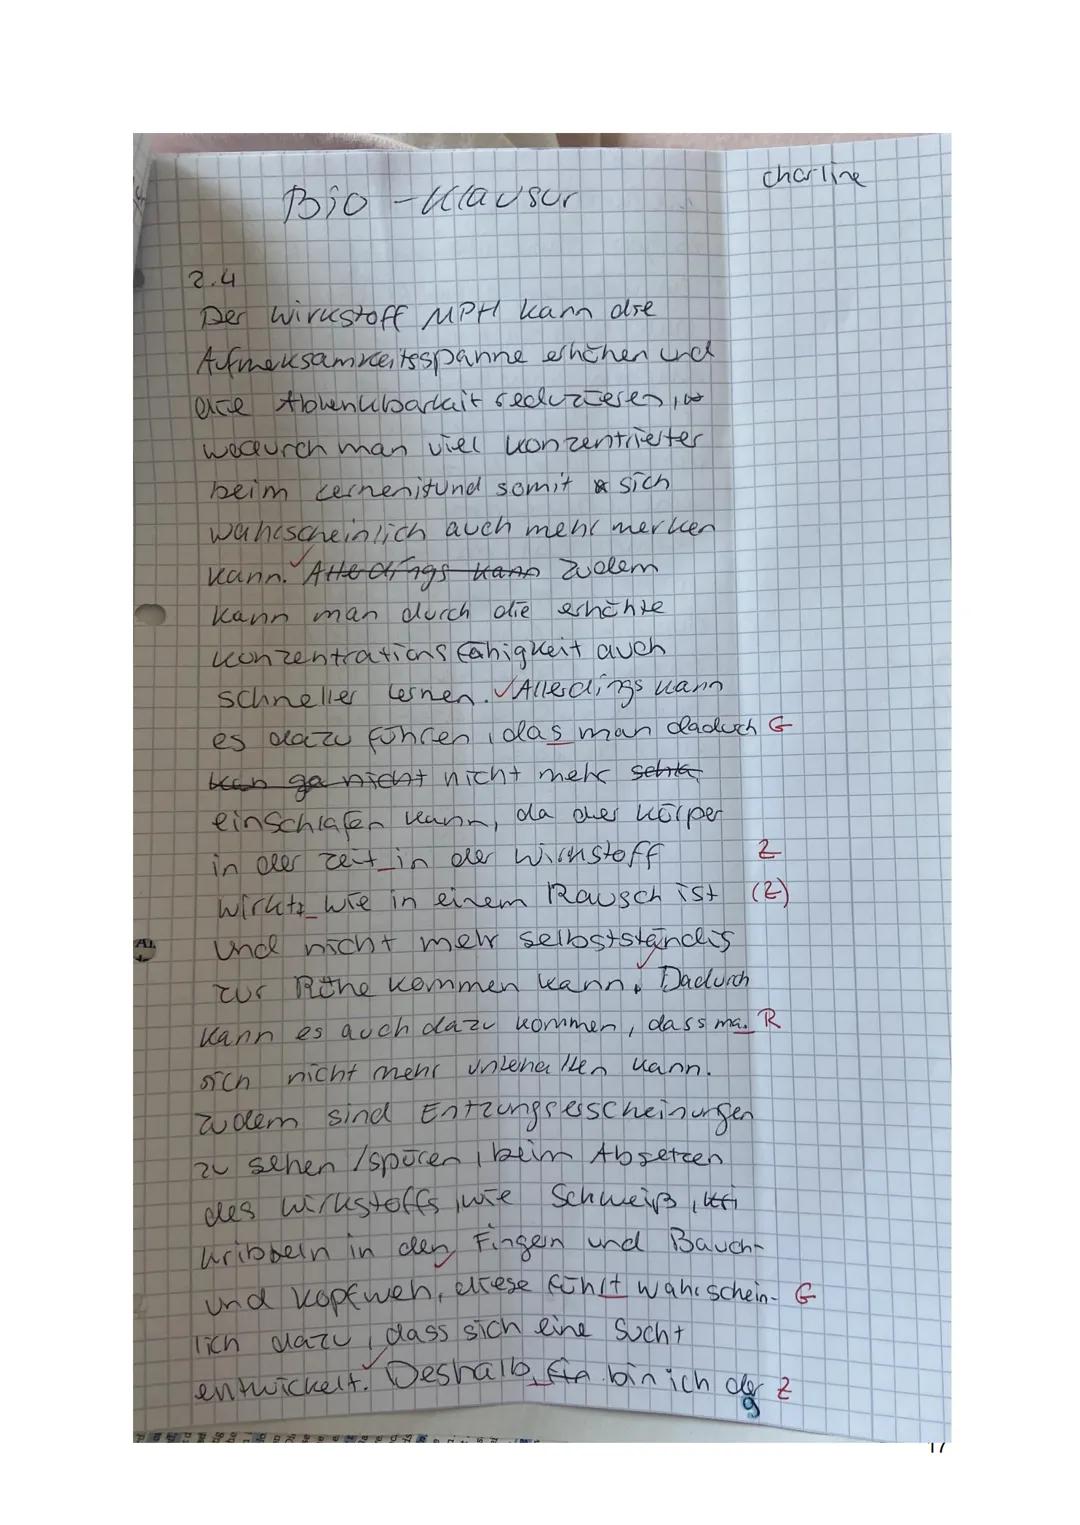 charline
Bio-Klausur
2.4
Der Wirkstoff MPH kann die
Aufmeksamkeitsspanne erhöhen und
die Ablenkbarkait reduzieren,
wodurch man viel konzentrierter
beim Lernen ist und somit sich
wahrscheinlich auch mehr merken
kann. Allerdings kann Zudem
kann man durch die erhöhte
Konzentrationsfähigkeit auch
schneller lernen. Allerdings kann
es dazu führen, das man daduch G
nicht nicht mehr
einschlafen kann, da der Körper
in der Zeit in der Wirkstoff Z
wirkt wie in einem Rausch ist (Z)
und nicht mehr selbstständig
zur Ruhe kommen kann. Dadurch
kann es auch dazu kommen, dass ma. R
sich nicht mehr unterhalten kann.
Zudem sind Entzungserscheinungen
zu sehen /spüren, beim Absetzen
des Wirkstoffs, wie Schweiß,
kribbeln in den Fingern und Bauch-
und Kopfweh, diese führt wahrschein- G
lich dazu, dass sich eine Sucht
entwickelt. Deshalb bin ich der Z
9
17